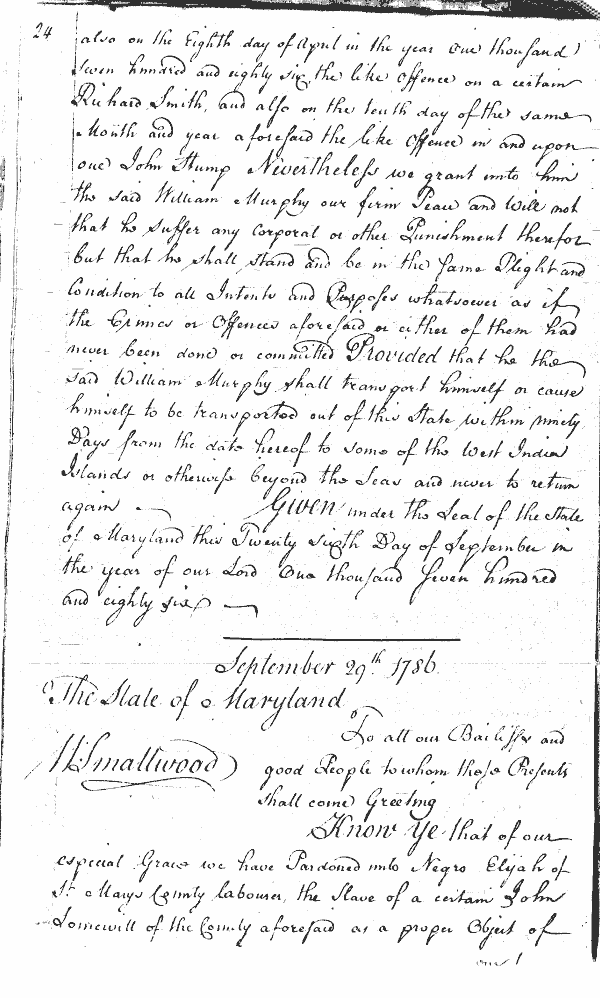 24
also on the Eighth day of April in the year One thousand
seven hundred and eighty six, the like Offence on a certain
Richard Smith, and also on the tenth day of the same
Month and year aforesaid the like Offence in and upon
one John Stump Nevertheless we grant unto him
the said William Murphy our firm Peace and Will not
that he suffer any corporal or other Punishment therefor
but that he shall stand and be in the same Plight and
Condition to all Intents and Purposes whatsoever as if
the Crimes or Offences aforesaid or either of them had
never been done or committed Provided that he the
said William Murphy shall transport himself or cause
himself to be transported out of this State within ninety
Days from the date hereof to some of the West India
Islands or otherwise beyond the Seas and never to return
again Given under the Seal of the State
of Maryland this Twenty sixth Day of September in
the year of our Lord One thousand seven hundred
and eighty six
September 29th 1786
The State of Maryland
To all our Bailiffs and
W. Smallwood good People to whom these Presents
shall come Greeting
Know Ye that of our
especial Grace we have Pardoned unto Negro Elijah of
St. Marys County labourer, the Slave of a certain John
Somewill of the County aforesaid as a proper Object of
our